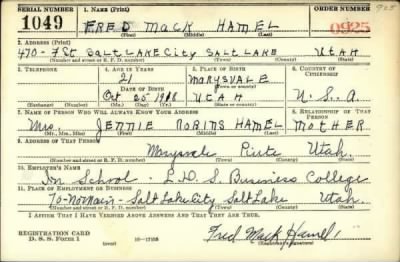 SERIAL NUMBER 1. NAME (Print) ORDER NUMBER
1049 FRED MACK HAMEL 0925
(First) (Middle) (Last)
2. ADDRESS (Print)
470- 7 St. Salt Lake City Salt Lake UTAH
(Number and street or R. F. D. number) (Town) (County) (State)
3. TELEPHONE 4. AGE IN YEARS 5. PLACE OF BIRTH 6. COUNTRY OF CITIZENSHIP
21 MARYSVALE
DATE OF BIRTH (Town or county)
Oct 25 UTAH U. S. A.
(Exchange) (Number) (Mo.) (Day) (Yr.) (State or country)
7. NAME OF PERSON WHO WILL ALWAYS KNOW YOUR ADDRESS 8. RELATIONSHIP OF THAT PERSON
Mrs. JENNIE ROBINS HAMEL MOTHER
(Mr., Mrs., Miss) (First) (Middle) (Last)
9. ADDRESS OF THAT PERSON
Marysvale Piute Utah.
(Number and street or R. F. D. number) (Town) (County) (State)
10. EMPLOYER'S NAME
In School - L.D.S. Business College
11. PLACE OF EMPLOYMENT OR BUSINESS
70-No Main- Salt Lake City Salt Lake Utah.
(Number and street or R. F. D. number) (Town) (County) (State)
I AFFIRM THAT I HAVE VERIFIED ABOVE ANSWERS AND THAT THEY ARE TRUE.
REGISTRATION CARD
D. S. S. Form 1 (over) Fred Mack Hamel
(Registrant's signature)